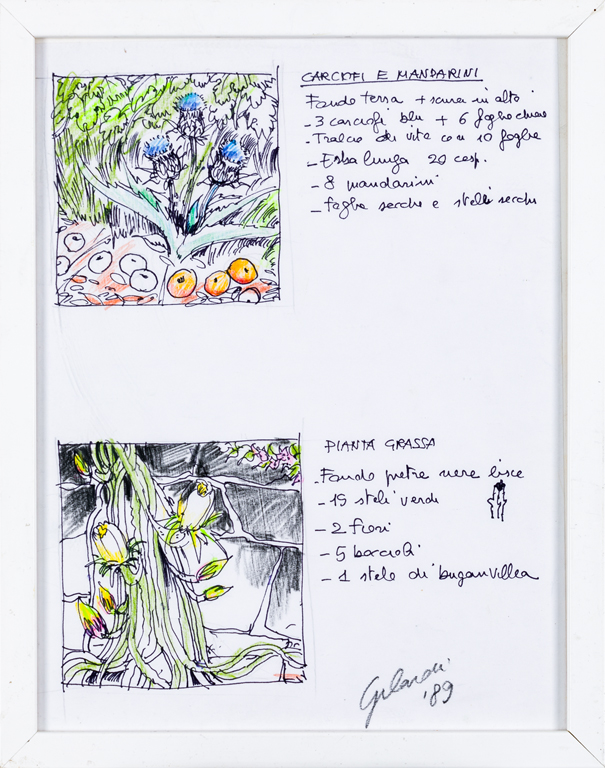 CARCIOFI E MANDARINI
Fondo terra + scura in alto
- 3 carciofi blu + 6 foglie chiare
- Tralcio di vite con 10 foglie
- Erba lunga 20 cesp.
- 8 mandarini
- foglie secche e steli secchi
PIANTA GRASSA
- Fondo pietre nere lisce
- 15 steli verdi
- 2 fiori
- 5 boccioli
- 1 stelo di buganvillea
Gilardi
'89